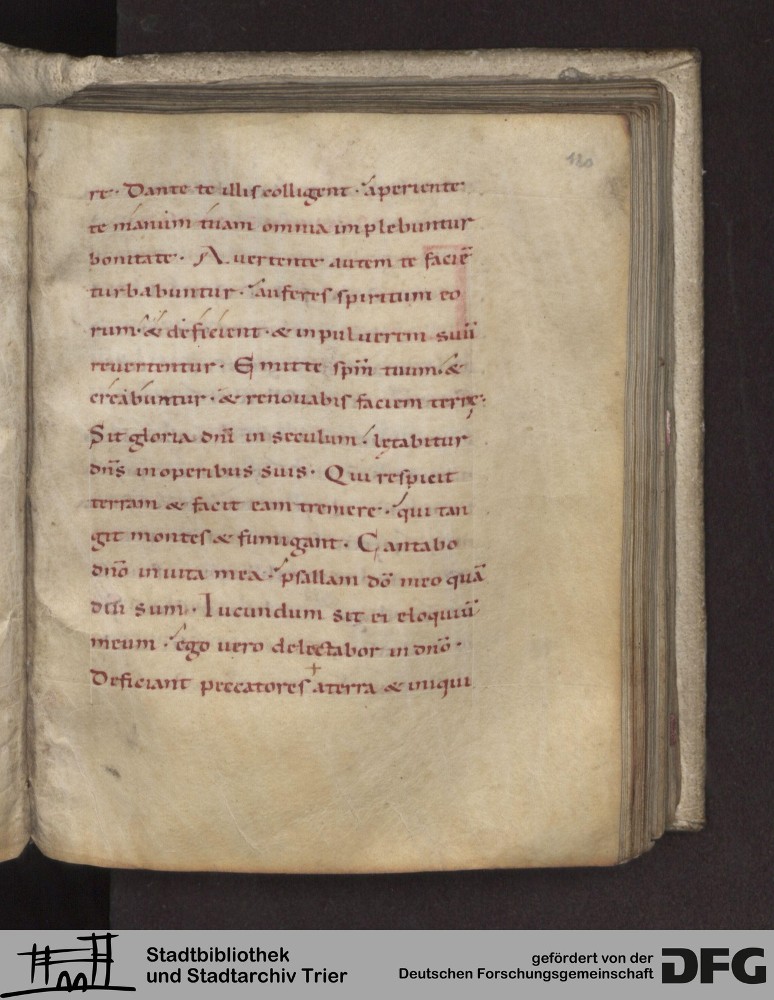 180
re· Dante te illis colligent· aperiente
te manum tuam omnia implebuntur
bonitate· Avertente autem te faciē
turbabuntur· auferes spiritum eo
rum· & deficient· & inpulverem suū
revertentur· Emitte spm̄ tuum· &
creabuntur· & renovabis faciem terrę·
Sit gloria dnī in seculum· lętabitur
dn̄s inoperibus suis· Qui respicit
terram & facit eam tremere· qui tan
git montes & fumigant· Cantabo
dnō invita mea· psallam dō meo quā
diu sum· Iucundum sit ei eloquiū
meum· ego vero delectabor in dnō·
Deficiant peccatores aterra & iniqui
Stadtbibliothek
und Stadtarchiv Trier
gefördert von der
Deutschen Forschungsgemeinschaft
DFG